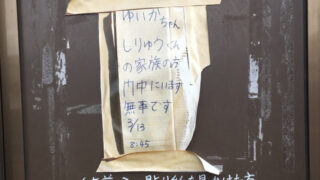 ゆいか
ちゃん
しりゅうくん
の家族の方
門中にいます
無事です
3/13
8:45